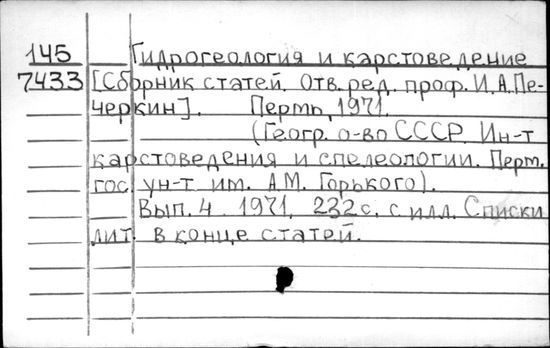 145 Гидрогеология и карстоведение
7433 [Сборник статей. Отв. ред. проф. И.А.Пе-
черкин]. Пермь, 1971.
(Геогр. о-во СССР. Ин-т
карстоведения и спелеологии. Перм.
гос. ун-т им. А.М. Горького).
Вып. 4. 1971. 232 с. с илл. Списки
лит. в конце статей.